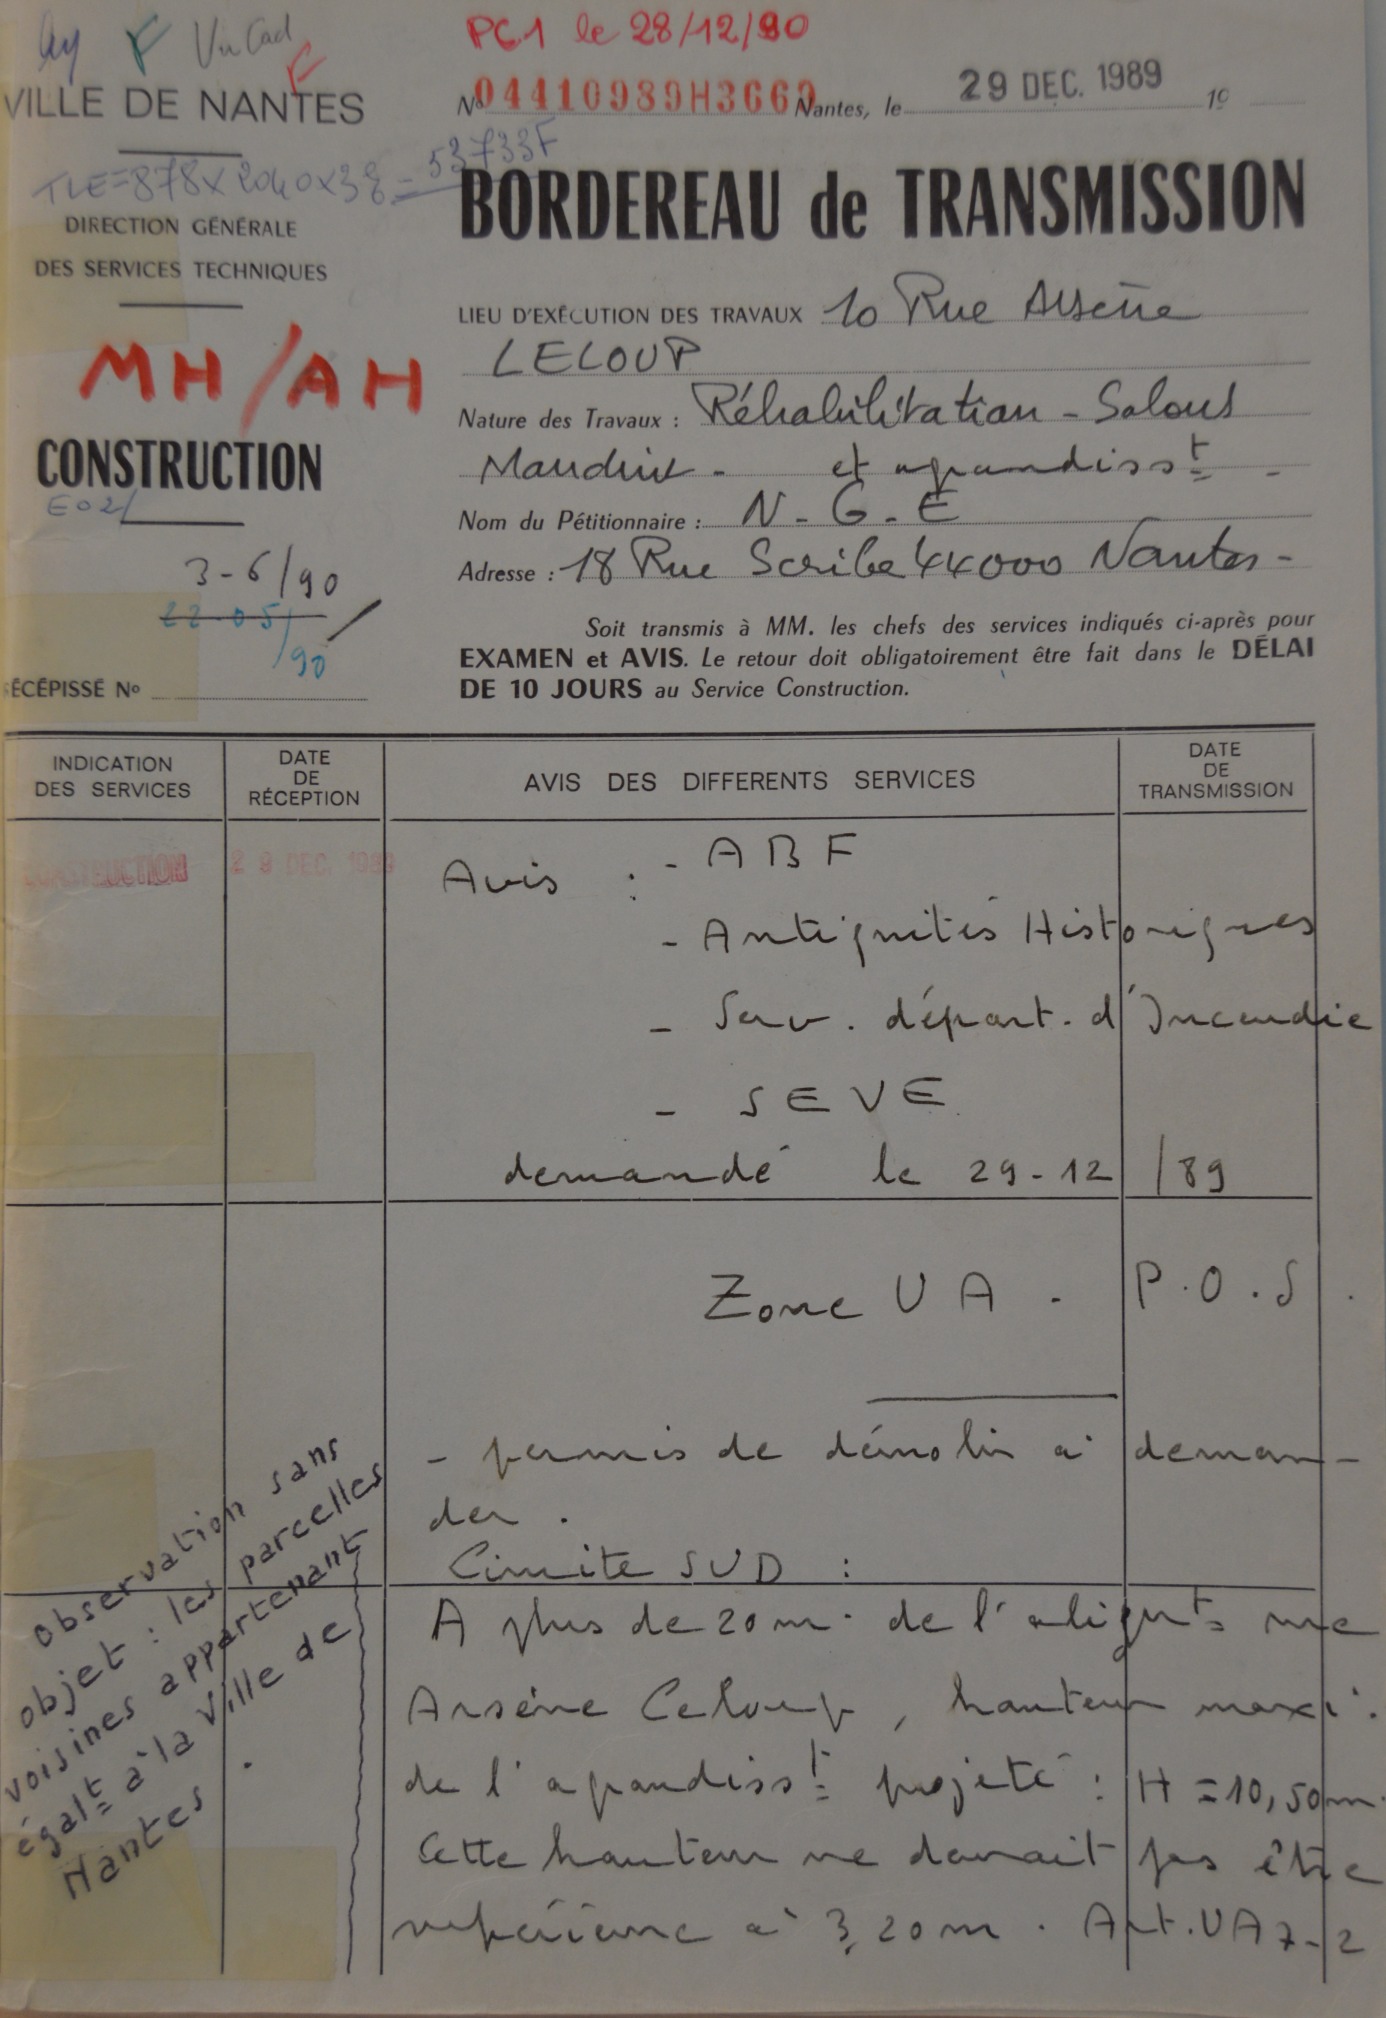 Vu Cad
F
F
PC1 le 28/12/90
VILLE DE NANTES
No 04410989H3662 Nantes, le 29 DEC. 1989 19
TLE=878x2040x3%=53733F
BORDEREAU de TRANSMISSION
DIRECTION GÉNÉRALE
DES SERVICES TECHNIQUES
LIEU D'EXÉCUTION DES TRAVAUX 10 Rue Arsène
LELOUP
MH/AH
Nature des Travaux : Réhabilitation - Salons
Mauduit - et agrandisst -
CONSTRUCTION
E02/
Nom du Pétitionnaire : N. G. E
Adresse : 18 Rue Scribe 44000 Nantes -
3-6/90
22.05/90
Soit transmis à MM. les chefs des services indiqués ci-après pour
EXAMEN et AVIS. Le retour doit obligatoirement être fait dans le DÉLAI
DE 10 JOURS au Service Construction.
RÉCÉPISSÉ No
INDICATION
DES SERVICES
DATE
DE
RÉCEPTION
AVIS DES DIFFERENTS SERVICES
DATE
DE
TRANSMISSION
CONSTRUCTION
29 DEC. 1989
Avis : - ABF
- Antiquités Historiques
- Serv. départ. d'Incendie
- SEVE
demandé le 29-12/89
Zone UA - P.O.S.
- permis de démolir à deman-
der .
Limite SUD :
A plus de 20m. de l'aligt rue
Arsène Leloup, hauteur maxi.
de l'agrandisst projeté : H = 10,50m.
Cette hauteur ne devrait pas être
supérieure à 3,20m . Art. UA 7-2
observation sans
objet : les parcelles
voisines appartenant
égalt à la Ville de
Nantes .